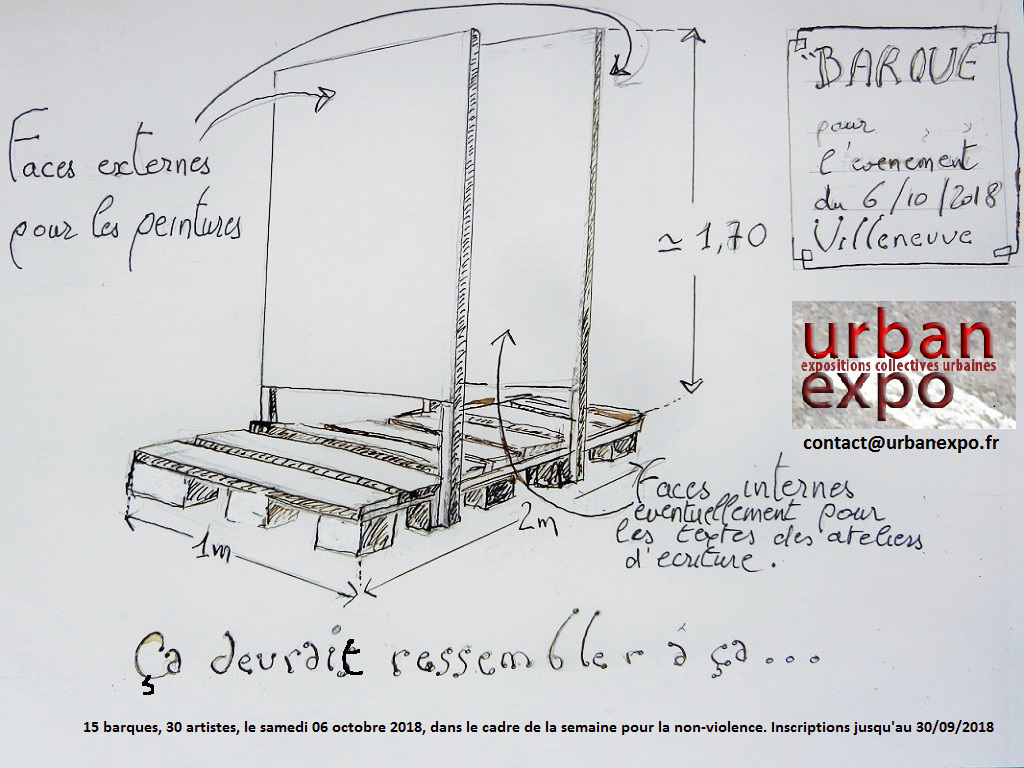 Faces externes
pour les peintures
≃ 1,70
"BARQUE
pour
l'évènement
du 6/10/2018
Villeneuve
urban
expositions collectives urbaines
expo
contact@urbanexpo.fr
1m
2m
Faces internes
eventuellement pour
les textes des ateliers
d'ecriture.
Ça devrait ressembler à ça...
15 barques, 30 artistes, le samedi 06 octobre 2018, dans le cadre de la semaine pour la non-violence. Inscriptions jusqu'au 30/09/2018